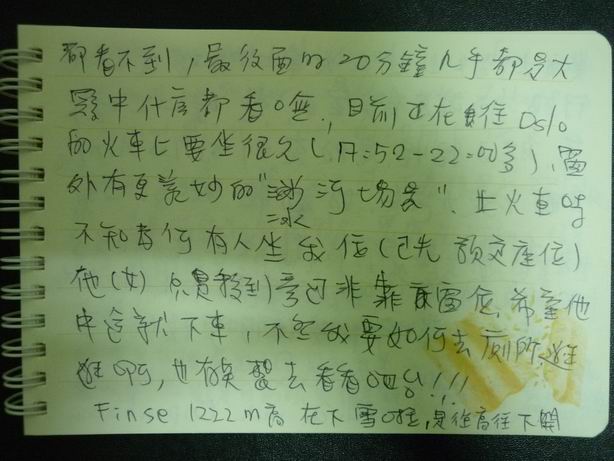 都看不到，最後面的20分鐘几乎都是大
霧中什麼都看嘸，目前正在往Oslo
的火車上要坐很久(17:52-22:00多)，窗
外有更美妙的"冰河場景"，上火車時
不知為何有人坐我位(已先預定座位)
他(女)只買到非靠窗，希望他
中途就下車，不然我要如何去廁所、逛
逛啊，也有去看看吧台!!!
Finse 1222m高 在下雪啦，是從高往下開